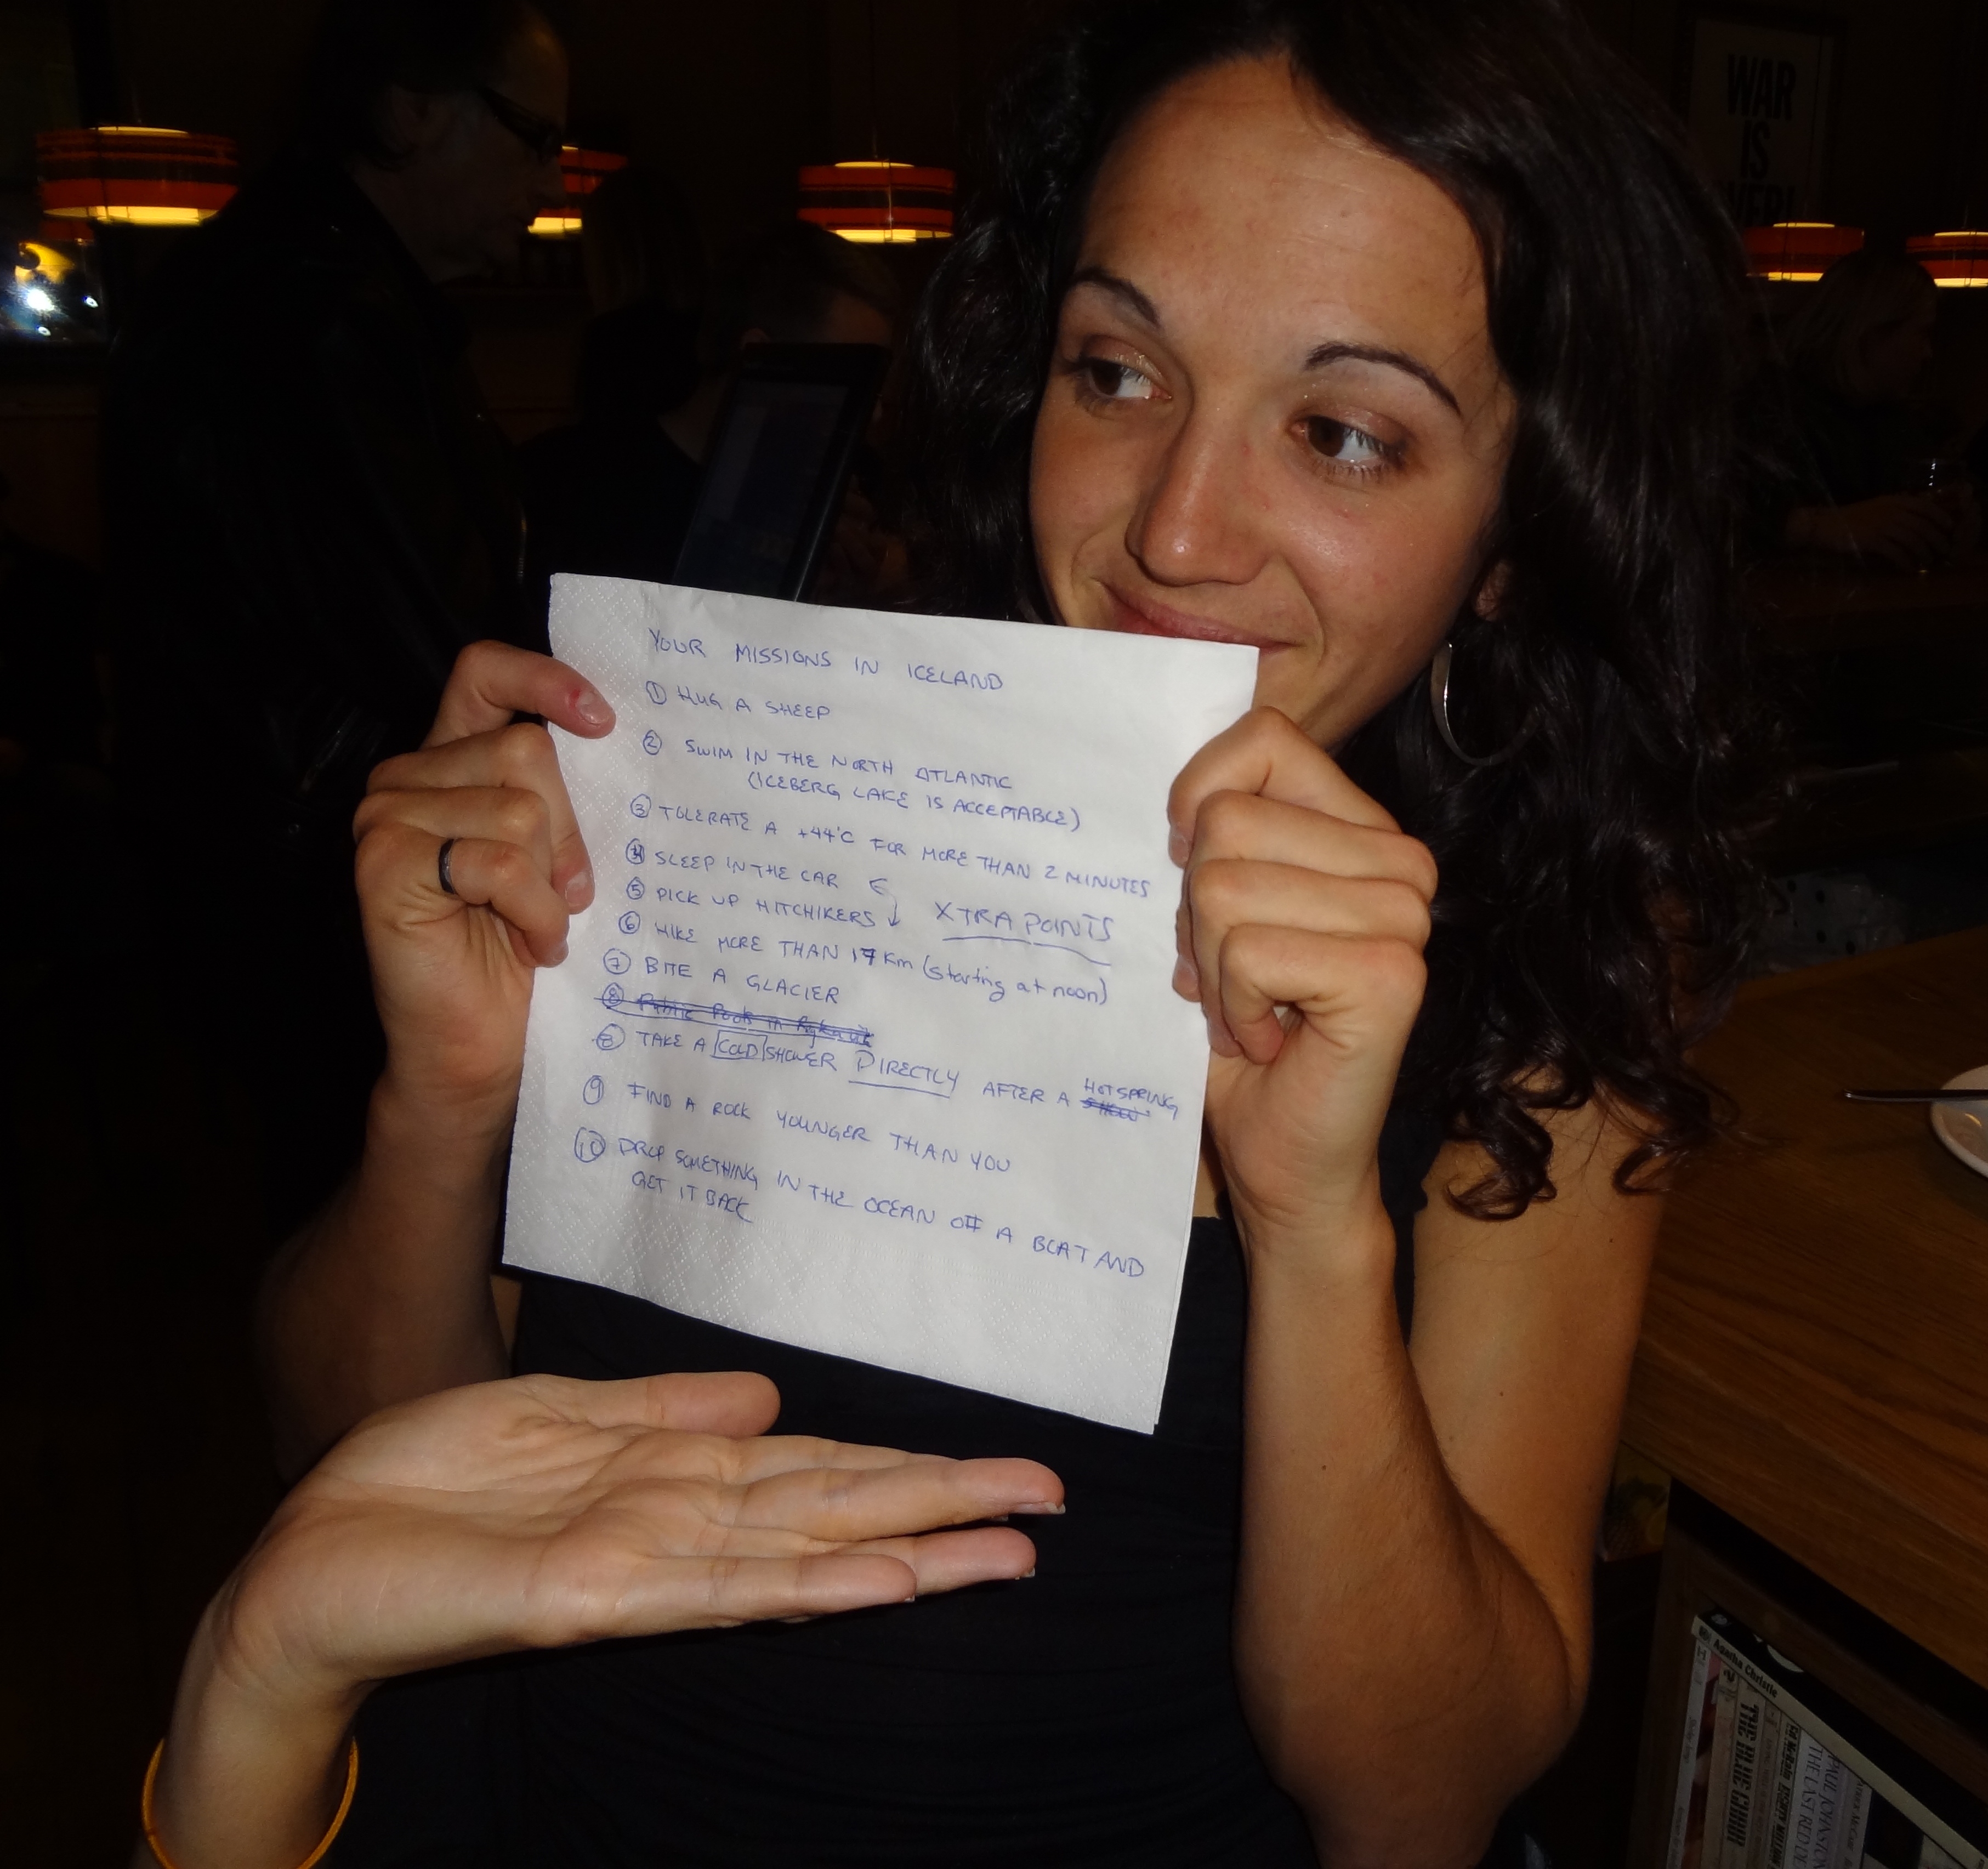 WAR
IS
YOUR MISSIONS IN ICELAND
① HUG A SHEEP
② SWIM IN THE NORTH ATLANTIC
(ICEBERG LAKE IS ACCEPTABLE)
③ TOLERATE A +44°C FOR MORE THAN 2 MINUTES
④ SLEEP IN THE CAR
⑤ PICK UP HITCHIKERS ↓ XTRA POINTS
⑥ HIKE MORE THAN 17 Km (starting at noon)
⑦ BITE A GLACIER
⑧ Public Pools in
⑧ TAKE A COLD SHOWER DIRECTLY AFTER A HOTSPRING
⑨ FIND A ROCK YOUNGER THAN YOU
⑩ DROP SOMETHING IN THE OCEAN OFF A BOAT AND
GET IT BACK
Agatha Christie
Ed McBain
PAUL JOHNSTON
THE LAST RED